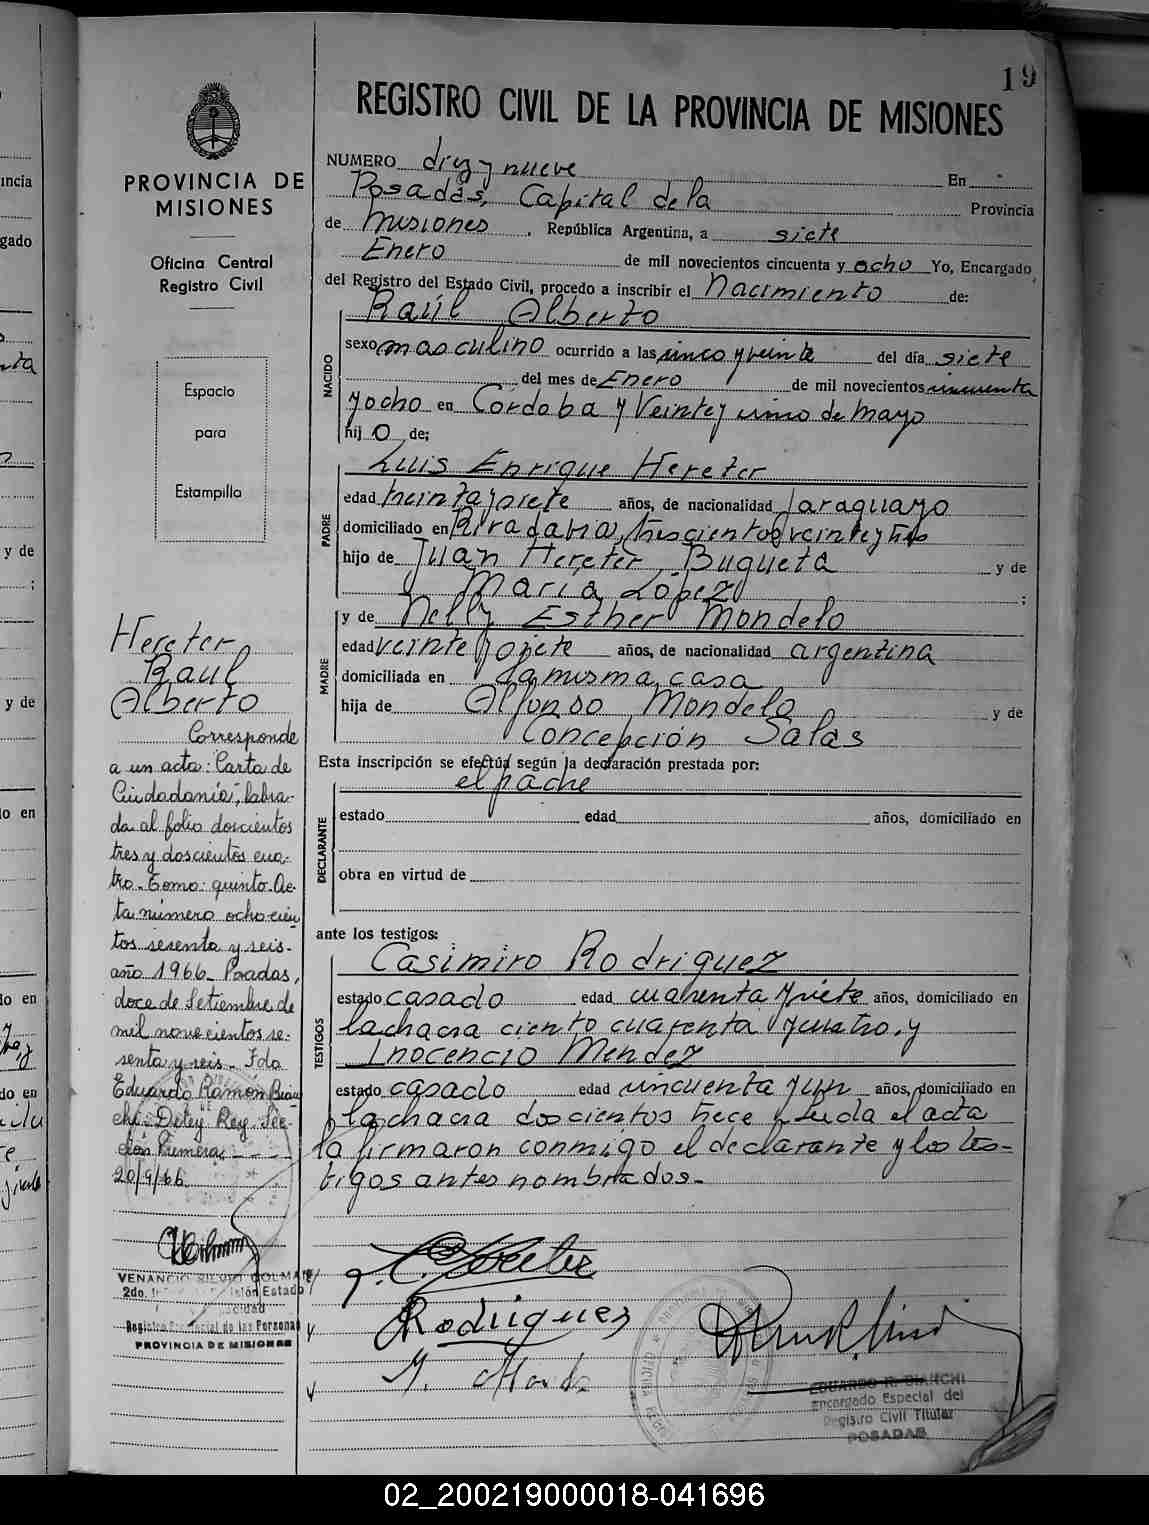 19
REGISTRO CIVIL DE LA PROVINCIA DE MISIONES
PROVINCIA DE
MISIONES
Oficina Central
Registro Civil
Espacio
para
Estampilla
NUMERO diez y nueve En
Posadas, Capital de la Provincia
de Misiones, República Argentina, a siete
Enero de mil novecientos cincuenta y ocho Yo, Encargado
del Registro del Estado Civil, procedo a inscribir el Nacimiento de:
Raúl Alberto
NACIDO
sexo masculino ocurrido a las cinco y veinte del día siete
del mes de Enero de mil novecientos cincuenta
y ocho en Cordoba y Veinte y cinco de Mayo
hijo de;
PADRE
Luis Enrique Hereter
edad treinta y siete años, de nacionalidad paraguayo
domiciliado en Rivadavia, trescientos veinte y tres
hijo de Juan Hereter Bugueta y de
María López ;
MADRE
y de Nelly Esther Mondelo
edad veinte y siete años, de nacionalidad argentina
domiciliada en la misma casa
hija de Alfonso Mondelo y de
Concepción Salas
Esta inscripción se efectúa según la declaración prestada por:
el padre
DECLARANTE
estado edad años, domiciliado en
obra en virtud de
ante los testigos:
TESTIGOS
Casimiro Rodriguez
estado casado edad cuarenta y siete años, domiciliado en
la chacra ciento cuarenta y cuatro, y
Inocencio Mendez
estado casado edad cincuenta y un años, domiciliado en
la chacra doscientos trece leida el acta
la firmaron conmigo el declarante y los tes-
tigos antes nombrados.-
Hereter
Raúl
Alberto
Corresponde
a un acta: Carta de
Ciudadanía, labra-
da al folio doscientos
tres y doscientos cua-
tro. Tomo: quinto. Ac-
ta número ochocien
tos sesenta y seis.
año 1966. Posadas,
doce de Setiembre de
mil novecientos se-
senta y seis. Fdo
Eduardo Ramón Bian
chi. Deleg Reg. Sec-
ción Primera.
20/9/66
VENANCIO SILVIO COLMAN
2do.
Registro Provincial de las Personas
PROVINCIA DE MISIONES
Rodriguez
EDUARDO R. BIANCHI
Encargado Especial del
Registro Civil Titular
POSADAS
02_200219000018-041696